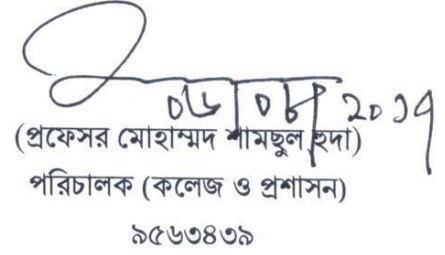 ০৬/০৮/২০১৭
(প্রফেসর মোহাম্মদ শামছুল হুদা)
পরিচালক (কলেজ ও প্রশাসন)
৯৫৬৩৪৩৯